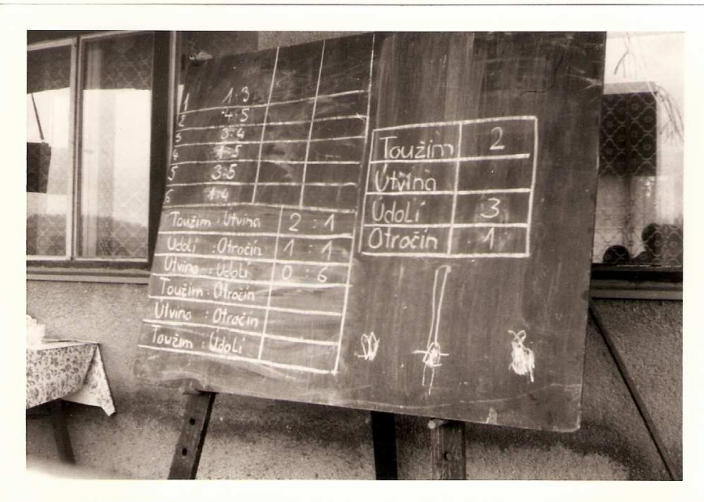 1 1:3
2 4:5
3 3:4
4 1:5
5 3:5
6 1:4
Toužim : Útvina 2 : 1
Údolí : Otročín 1 : 1
Útvina : Údolí 0 : 6
Toužim : Otročin
Útvina : Otročin
Toužim : Údolí
Toužim 2
Útvina
Údolí 3
Otročin 1